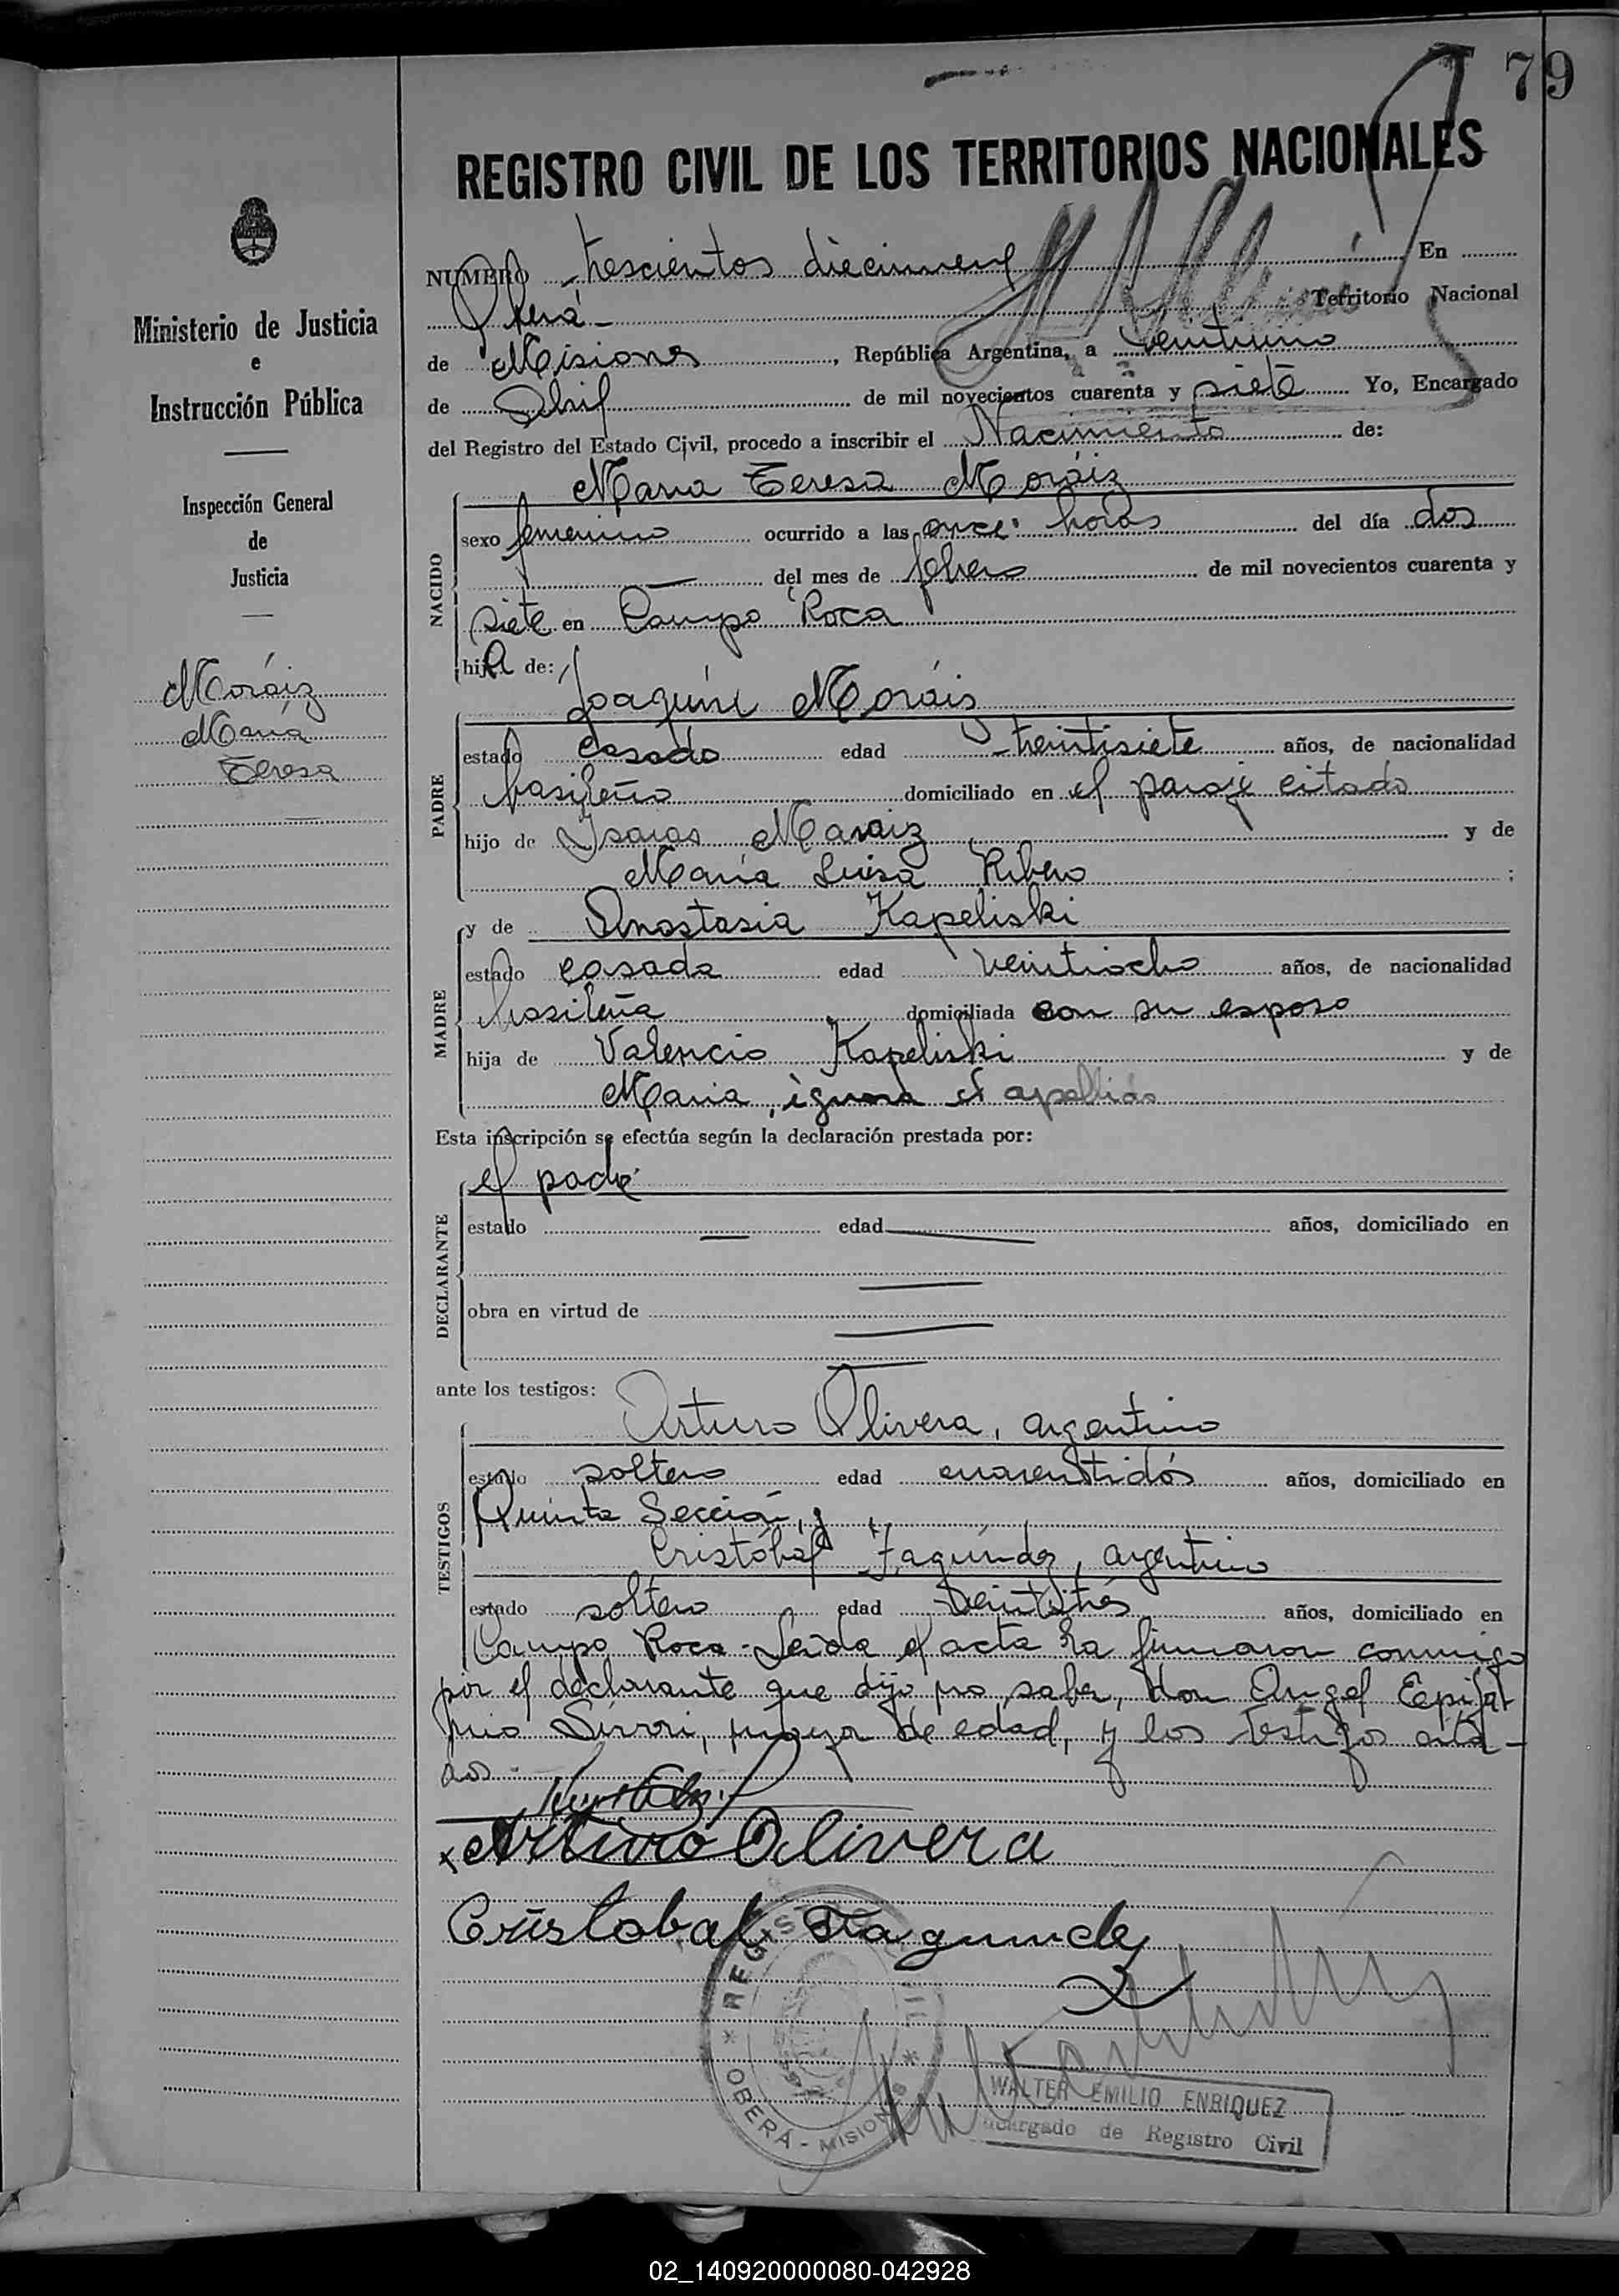 79
REGISTRO CIVIL DE LOS TERRITORIOS NACIONALES
NUMERO trescientos diecinueve En
Oberá - Territorio Nacional
de Misiones, República Argentina, a veintiuno
de Abril de mil novecientos cuarenta y siete Yo, Encargado
del Registro del Estado Civil, procedo a inscribir el Nacimiento de:
Ministerio de Justicia
e
Instrucción Pública
Inspección General
de
Justicia
Moráiz
María
Teresa
NACIDO
Maria Teresa Moráiz
sexo femenino ocurrido a las once horas del día dos
— del mes de febrero de mil novecientos cuarenta y
siete en Campo Roca
hija de:
PADRE
Joaquín Moráis
estado casado edad treintisiete años, de nacionalidad
brasileño domiciliado en el paraje citado
hijo de Isaias Maraiz y de
María Luisa Ribero ;
MADRE
y de Anastasia Kapeliski
estado casada edad veintiocho años, de nacionalidad
brasileña domiciliada con su esposo
hija de Valencio Kapeliski y de
Maria, ignora el apellido
Esta inscripción se efectúa según la declaración prestada por:
DECLARANTE
el padre
estado — edad — años, domiciliado en
—
obra en virtud de —
—
ante los testigos:
TESTIGOS
Arturo Olivera, argentino
estado soltero edad cuarentidós años, domiciliado en
Quinta Sección, y
Cristóbal Fagúndez, argentino
estado soltero edad veintitrés años, domiciliado en
Campo Roca - Leída el acta la firmaron conmigo
por el declarante que dijo no saber, don Angel Epifa-
nio, mayor de edad, y los testigos cita-
dos -
Arturo Olivera
Cristobal Fagundez
REGISTRO CIVIL
* OBERA - MISIONES *
WALTER EMILIO ENRIQUEZ
Encargado de Registro Civil
02_140920000080-042928